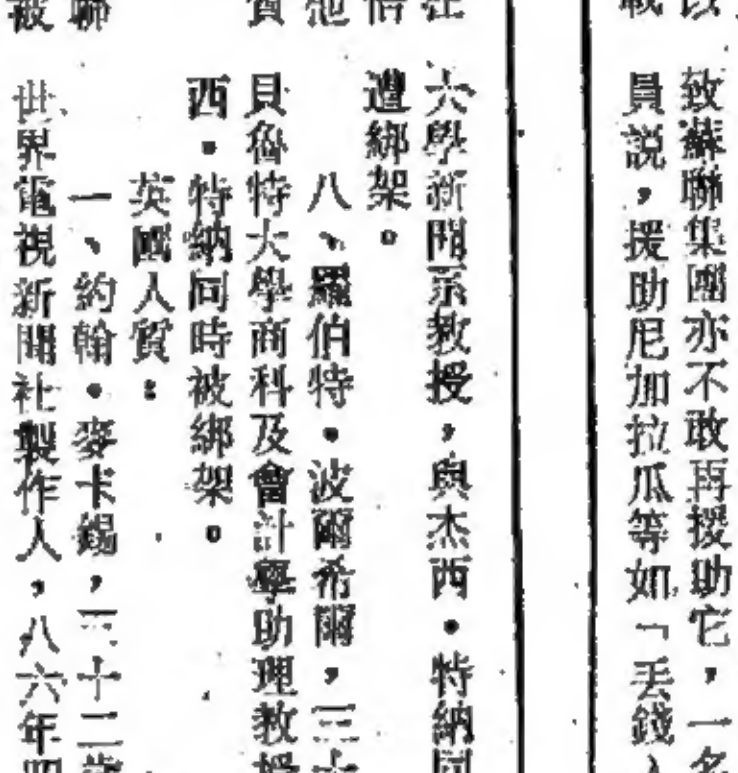 以
致蘇聯集團亦不敢再援助它，一名
員說，援助尼加拉瓜等如「丟錢入
大學新聞系教授，與杰西・特納同
遭綁架。
八、羅伯特・波爾希爾，三十
貝魯特大學商科及會計學助理教授
西・特納同時被綁架。
英國人質：
一、約翰・麥卡錫，三十二歲
世界電視新聞社製作人，八六年四